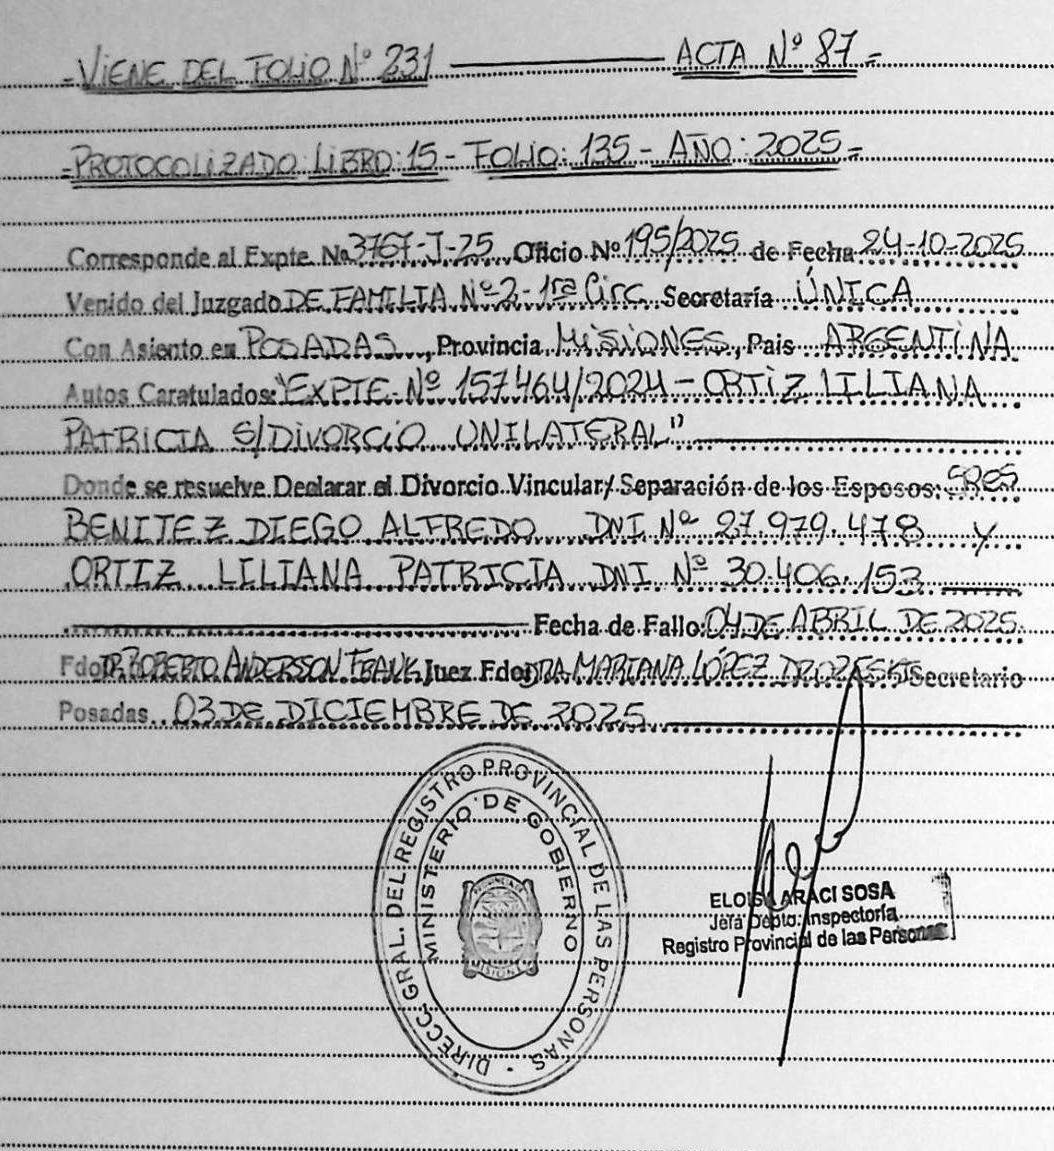 =VIENE DEL FOLIO Nº 231 ———— ACTA Nº 87=
=PROTOCOLIZADO: LIBRO: 15 - FOLIO: 135 - AÑO: 2025=
Corresponde al Expte. Nº 3767-J-25 Oficio Nº 195/2025 de Fecha 24-10-2025
Venido del Juzgado DE FAMILIA Nº 2 - 1ra Circ. Secretaría ÚNICA
Con Asiento en POSADAS, Provincia MISIONES, Pais ARGENTINA
Autos Caratulados: "EXPTE. Nº 157464/2024 - ORTIZ LILIANA
PATRICIA S/DIVORCIO UNILATERAL"
Donde se resuelve Declarar el Divorcio Vincular/ Separación de los Esposos: SRES
BENITEZ DIEGO ALFREDO DNI Nº 27.979.478 y
ORTIZ LILIANA PATRICIA DNI Nº 30.406.153
Fecha de Fallo: 04 DE ABRIL DE 2025
Fdo: DR. ROBERTO ANDERSSON FRANK Juez Fdo: DRA. MARIANA LÓPEZ Secretario
Posadas 03 DE DICIEMBRE DE 2025
DIRECC. GRAL. DEL REGISTRO PROVINCIAL DE LAS PERSONAS
MINISTERIO DE GOBIERNO
MISIONES
ELOISA ARACI SOSA
Jefa Depto. Inspectoría
Registro Provincial de las Personas